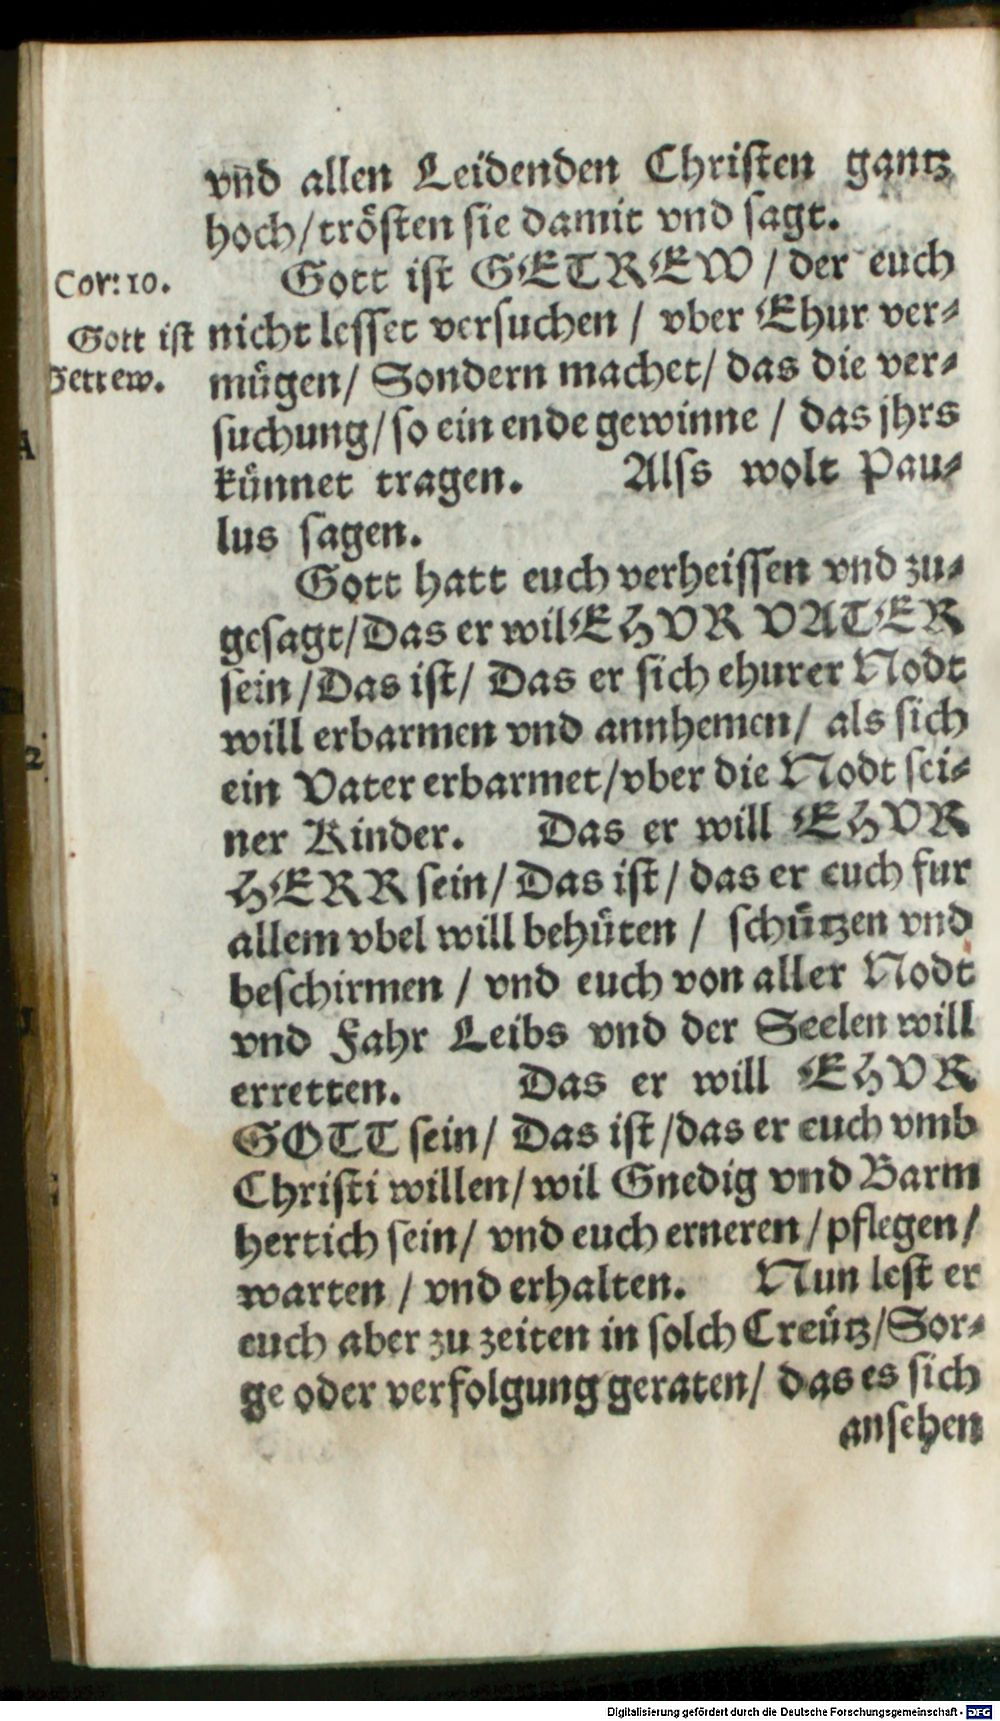 vnd allen Leidenden Christen gantz
hoch/trösten sie damit vnd sagt.
Cor: 10.
Gott ist
Getrew.
Gott ist GETREW/der euch
nicht lesset versuchen / vber Ehur ver⸗
mügen/ Sondern machet/ das die ver⸗
suchung/so ein ende gewinne / das jhrs
künnet tragen. Alss wolt Pau⸗
lus sagen.
Gott hatt euch verheissen vnd zu⸗
gesagt/Das er wil EHVR VATER
sein/Das ist/ Das er sich ehurer Nodt
will erbarmen vnd annhemen/ als sich
ein Vater erbarmet/vber die Nodt sei⸗
ner Kinder. Das er will EHVR
HERR sein/Das ist/ das er euch fur
allem vbel will behüten / schützen vnd
beschirmen / vnd euch von aller Nodt
vnd Fahr Leibs vnd der Seelen will
erretten. Das er will EHVR
GOTT sein/ Das ist/das er euch vmb
Christi willen/wil Gnedig vnd Barm
hertich sein/ vnd euch erneren/pflegen/
warten / vnd erhalten. Nun lest er
euch aber zu zeiten in solch Creütz/Sor⸗
ge oder verfolgung geraten/ das es sich
ansehen
Digitalisierung gefördert durch die Deutsche Forschungsgemeinschaft - DFG